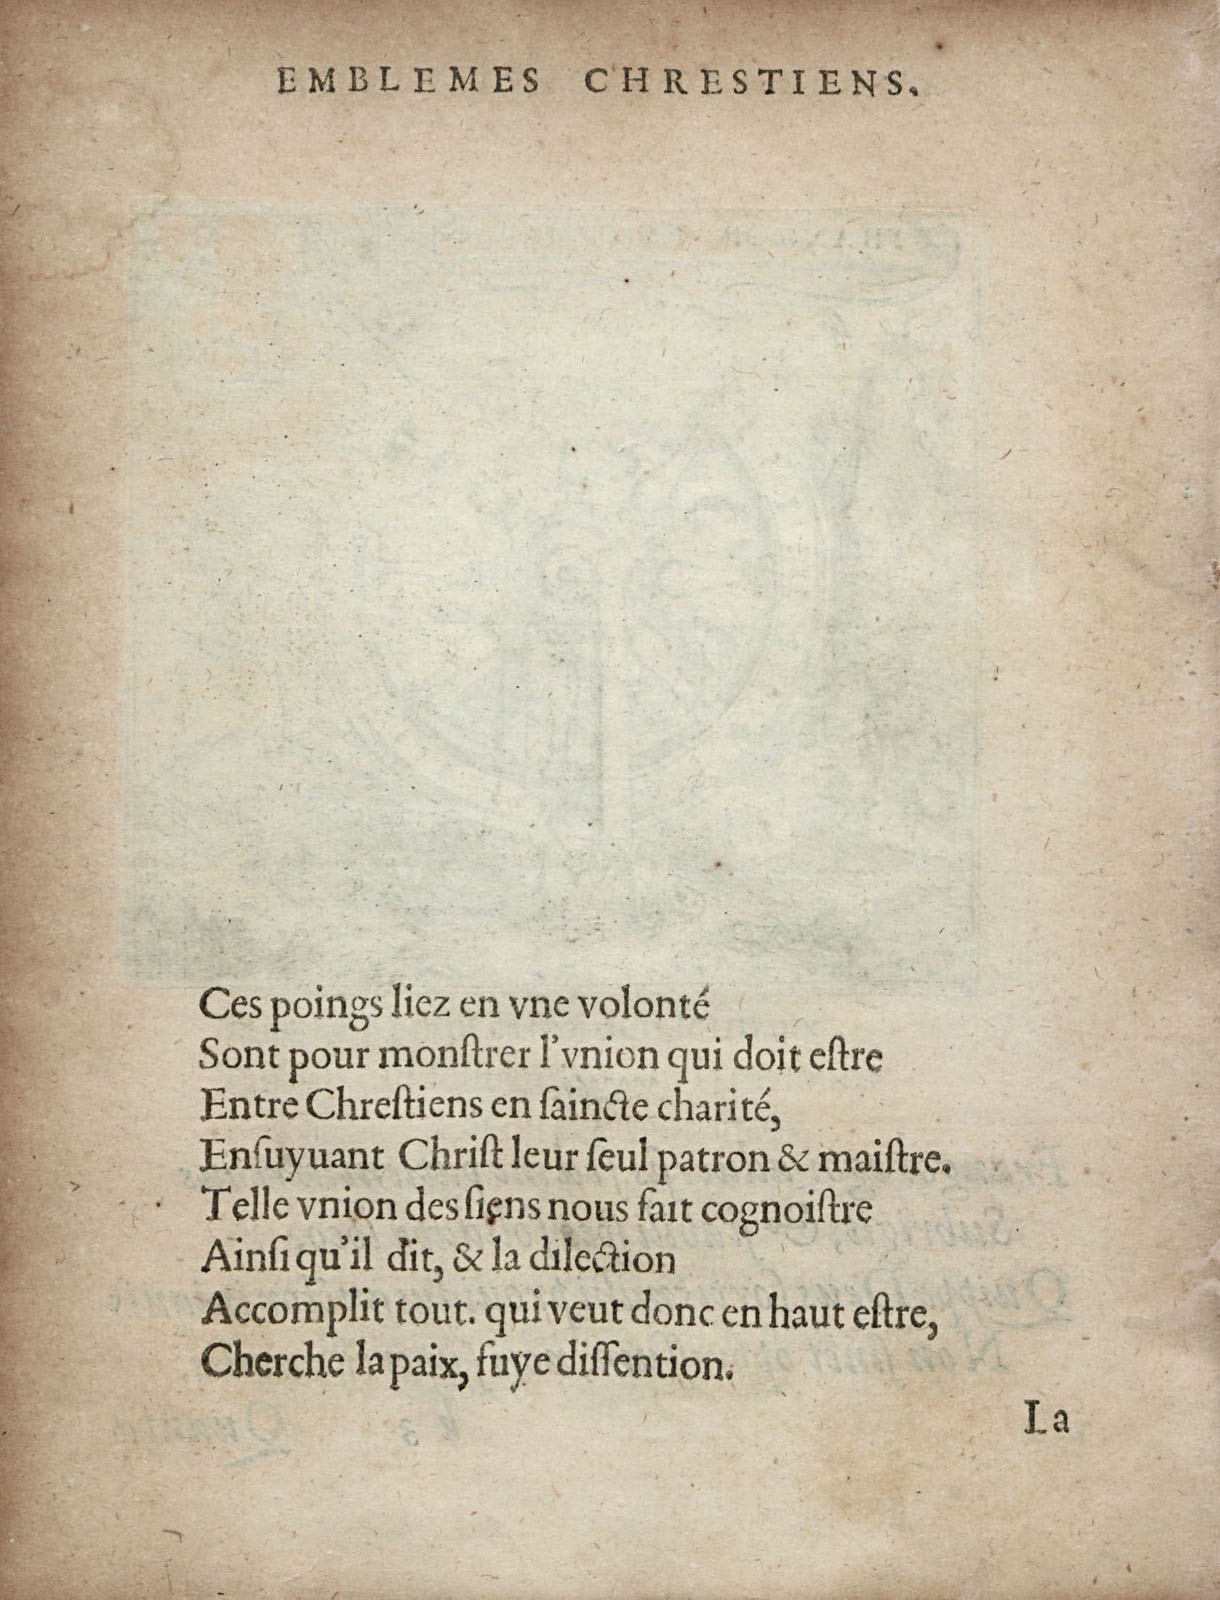 EMBLEMES CHRESTIENS.
Ces poings liez en vne volonté
Sont pour monſtrer l'vnion qui doit eſtre
Entre Chreſtiens en ſaincte charité,
Enſuyuant Chriſt leur ſeul patron & maiſtre.
Telle vnion des ſiens nous fait cognoiſtre
Ainſi qu'il dit, & la dilection
Accomplit tout. qui veut donc en haut eſtre,
Cherche la paix, fuye diſſention.
La